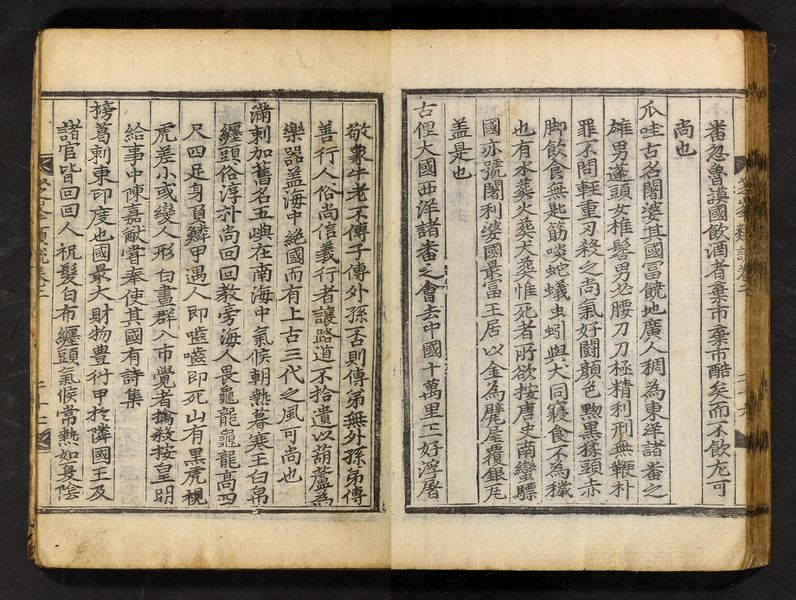 畨忽魯謨國飮酒者棄市棄市酷矣而不飮尤可
尚也
爪哇古名闍婆其國富饒地廣人稠為東洋諸畨之
雄男蓬頭女椎髻男必腰刀刀極精利刑無鞭朴
罪不問輕重刃殺之尚氣好鬪顔色黝黑猱頭赤
脚飮食無匙筯啖蛇蟻虫蚓與犬同寢食不為穢
也有水葬火葬犬葬惟死者所欲按唐史南蠻驃
國亦號闍利婆國最富王居以金為甓屋覆銀瓦
盖是也
古俚大國西洋諸畨之會去中國十萬里 好浮屠
敬象牛老不傳子傳外孫否則傳弟無外孫弟傳
善行人俗尚信義行者讓路道不拾遺以葫蘆為
樂器盖海中絶國而有上古三代之風可尚也
滿剌加舊名五嶼在南海中氣候朝熱暮寒王白帛
纏頭俗淳朴尚回回教旁海人畏龜龍龜龍高四
尺四足身負鱗甲遇人即嚙嚙即死山有黑虎視
虎差小或變人形白晝群入市覺者擒殺按皇明
給事中陳嘉猷甞奉使其國有詩集
榜葛剌東印度也國最大財物豊衍甲於隣國王及
諸官皆回回人祝髮白布纏頭氣候常熱如夏陰